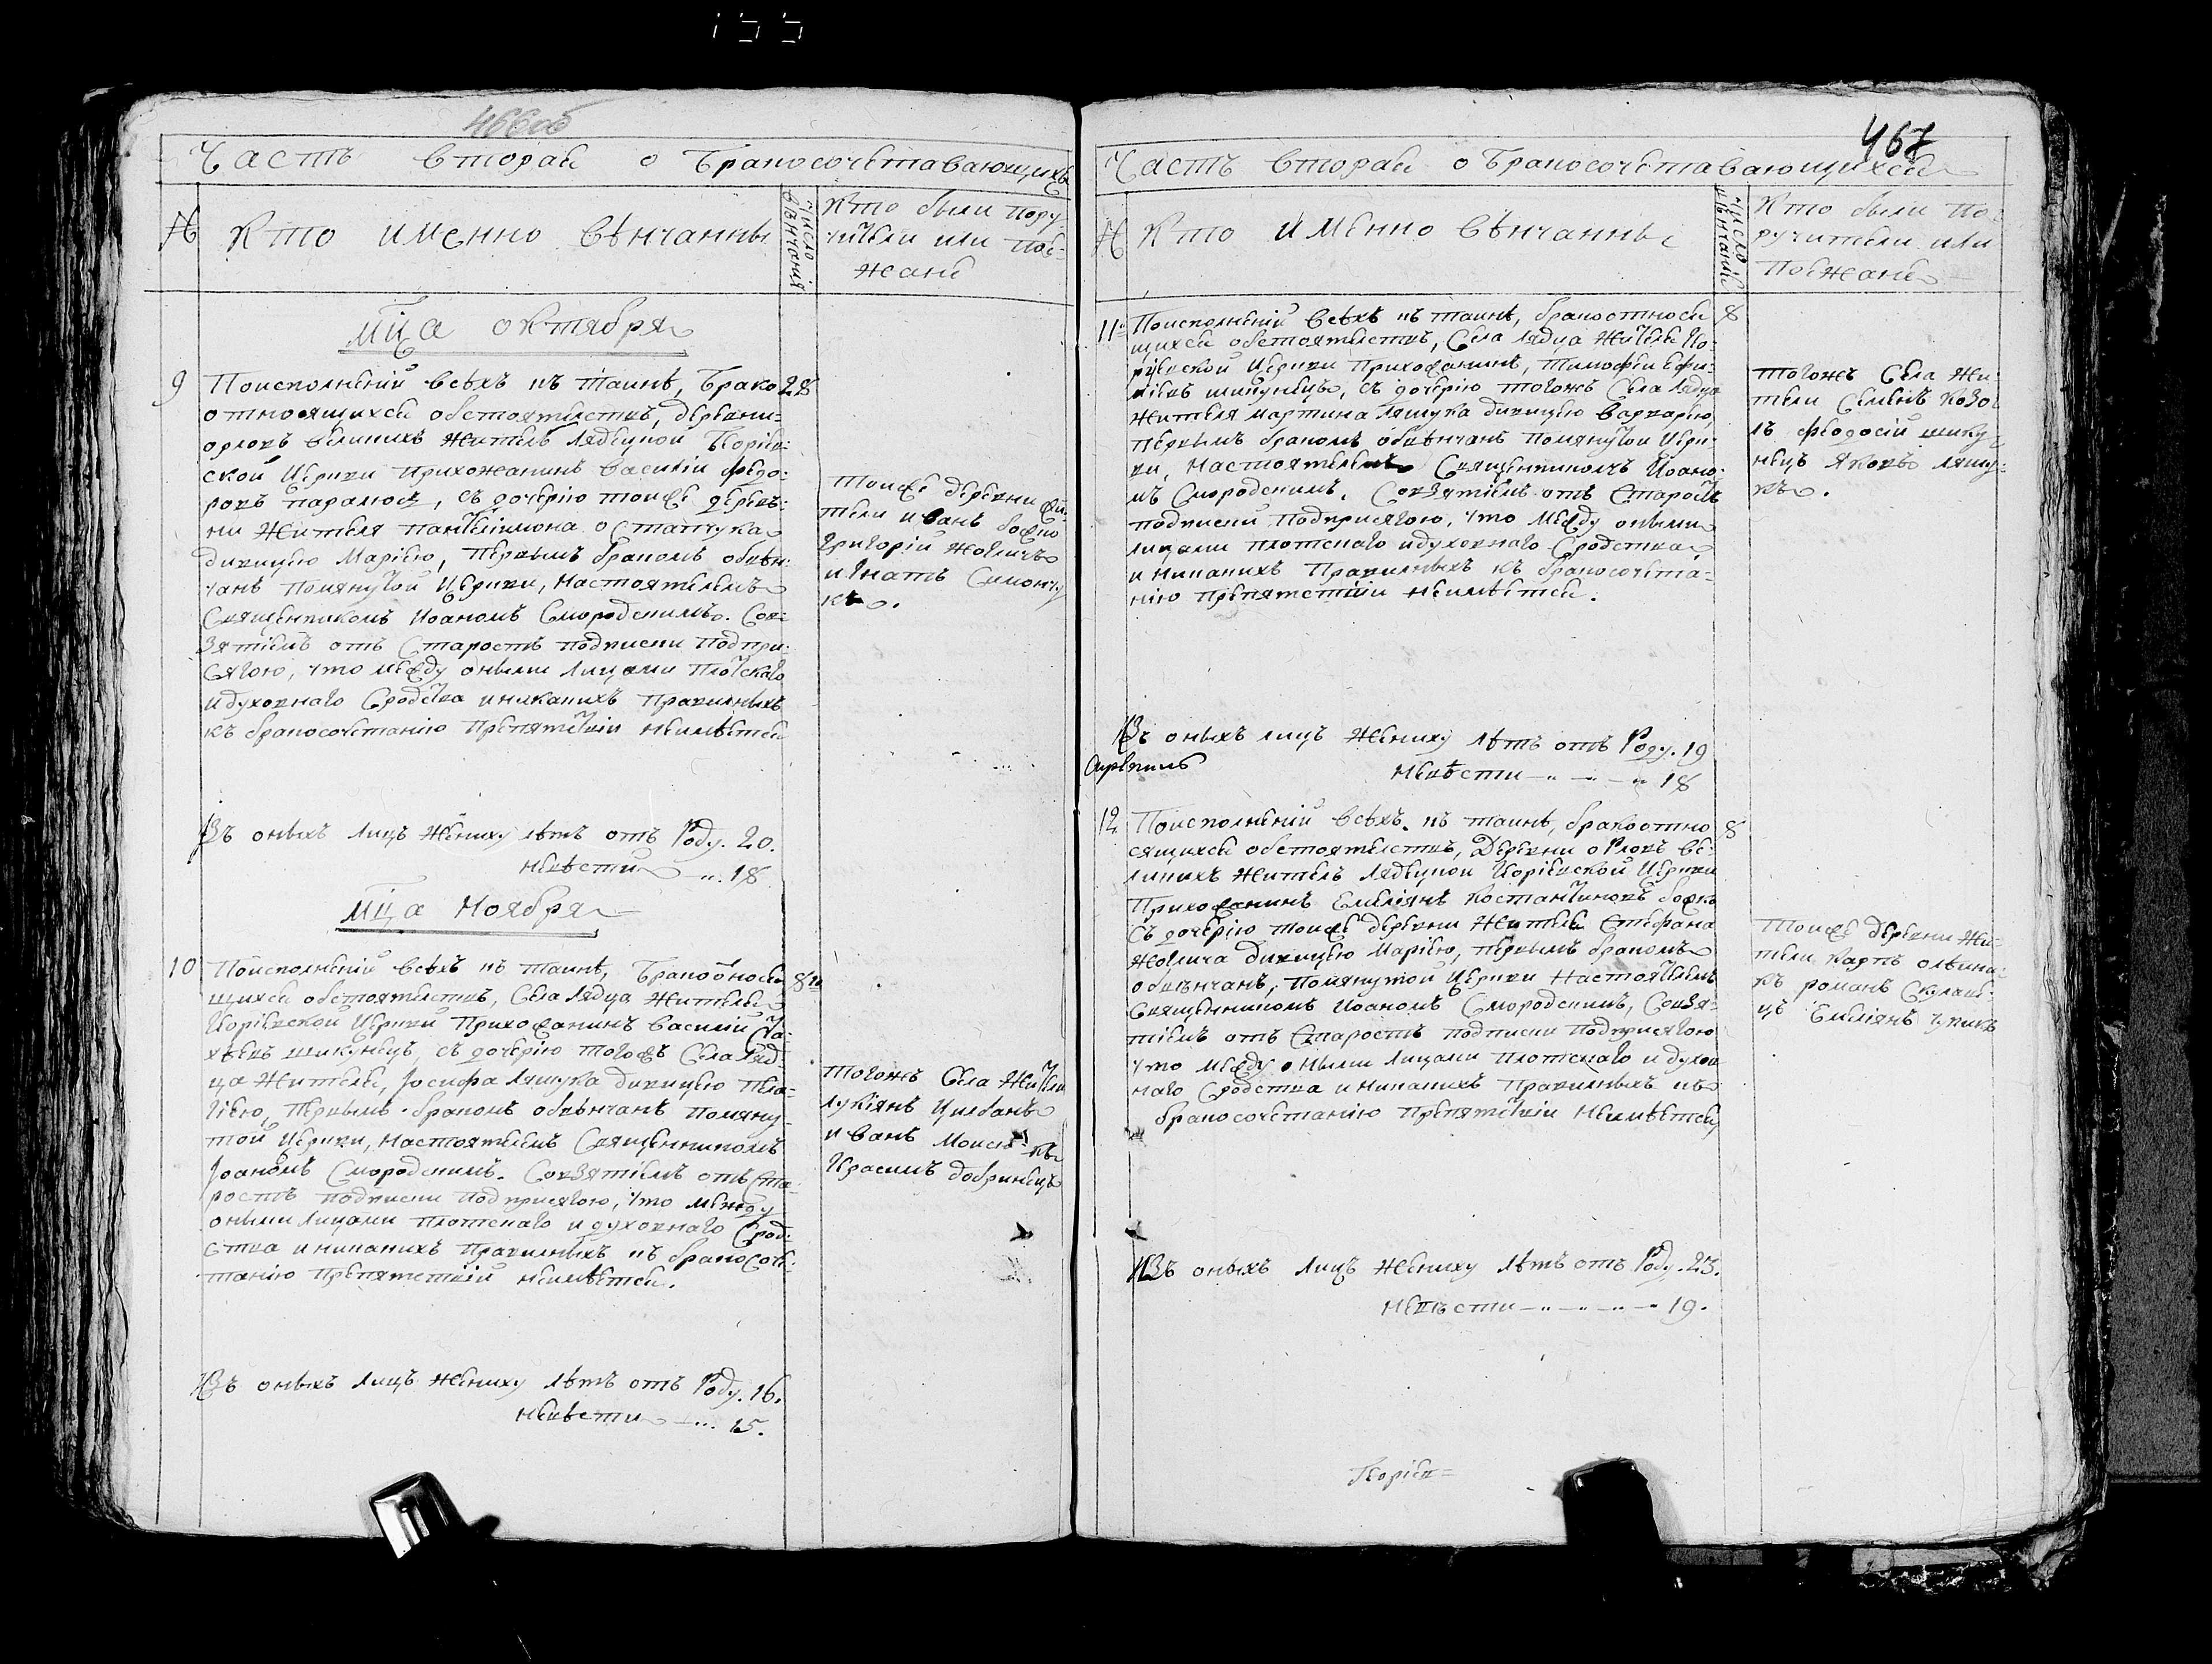 466об
Часть вторая о бракосочетавающихся
№ Кто именно вѣнчанны
число вѣнчания
Кто были пору
чители или поѣ-
жане
Мца октября
9 Поисполнении всѣхъ къ таинѣ, брако 28
относящихся обстоятелствъ, деревни
орловъ великихъ жителъ лядецкой Георгиев
ской церкви прихожанинъ василий федо:
ровъ паралюх, съ дочерию тоиже дерев:
ни жителя пантелимона Остапчука
дивицею Мариею, первымъ бракомъ обвен:
чанъ помянутой церкви, настоятелемъ
Священникомъ Иоаномъ Смородскимъ. Сов
зятиемъ отъ Старостъ подписки подпри:
сягою, что между оными лицами плотскаго
идуховнаго Сродства иникакихъ правилныхъ
къ бракосочетанию препятствии неимѣется
Тоиже деревни жи
тели иванъ божко
григорий жовничъ
игнатъ Симончу
къ.
Изъ оныхъ лицъ жениху лѣтъ отъ Роду. 20.
невѣсти 18
Мца Ноября
10 Поисполнении всѣхъ къ таинѣ, бракоотнося 8го
щихся обстоятелствъ, Села лядца жителъ
Юриевской церкви прихожанинъ василий
шикунецъ, съ дочерию тогожъ Села ляд:
ца жителя, Иосифа ляшука дивицею пела-
гиею, первымъ бракомъ обвѣнчанъ помяну
той церкви, настоятелемъ Священникомъ
Иоаномъ Смородскимъ. Совзятиемъ отъ Ста
ростъ подписки подприсягою, что между
оными лицами плотскаго и духовнаго Срод:
ства иникакихъ правилныхъ къ бракосоче:
танию препятствий неимѣется.
Тогожъ Села жители
лукиянъ Цилбанъ
иванъ
Герасимъ добринецъ
Изъ оныхъ лицъ жениху лѣтъ отъ Роду. 16.
невѣсти 15.
467
Часть вторая о бракосочетавающихся
№ Кто именно вѣнчанны
число вѣнчание
Кто были по:
ручители или
поѣжане
11 Поисполнении всѣхъ къ таинѣ, бракоотнося 8
щихся обстоятелствъ, Села лядца жителъ Ю
риевской церкви прихожанинъ, тимофей Ефи
миевъ шикунецъ, съ дочерию тогожъ Села лядца
жителя мартина ляшука дивицею варварою,
первымъ бракомъ обвѣнчанъ помянутой церк-
ви, настоятелемъ Священникомъ Иоано
мъ Смородскимъ. Совзятиемъ отъ Старостъ
подписки подприсягою, что между оными
лицами плотскаго идуховнаго Сродства
и никакихъ правилныхъ къ бракосочета-
нию препятствий неимѣется.
Тогожъ Села жи
тели Семенъ козо
лъ феодосий шику
нецъ Яковъ ляшу
къ.
Изъ оныхъ лицъ жениху лѣтъ отъ Роду. 19
невѣсти 18
12 Поисполнении всѣхъ къ таинѣ, бракоотно 8
сящихся обстоятелствъ, деревни орловъ ве
ликихъ жителъ лядецкой Юриевской церкви
прихожанинъ Емелиянъ Костантиновъ божко
съ дочерию тоиже деревни жителя Стефана
жовнича дивицею Мариею, первымъ бракомъ
обвѣнчанъ, помянутой церкви настоятелемъ
Священникомъ Иоаномъ Смородскимъ, Совзя-
тиемъ отъ Старостъ подписки подприсягою
что между оными лицами плотскаго и духов
наго Сродства и никакихъ правилныхъ къ
бракосочетанию препятствии неимѣется
Тоиже деревни жи-
тели карпъ олѣйни
къ романъ
цъ Емелиянъ
Изъ оныхъ лицъ жениху лѣтъ отъ Роду. 23.
невѣсти 19.
Георгиев